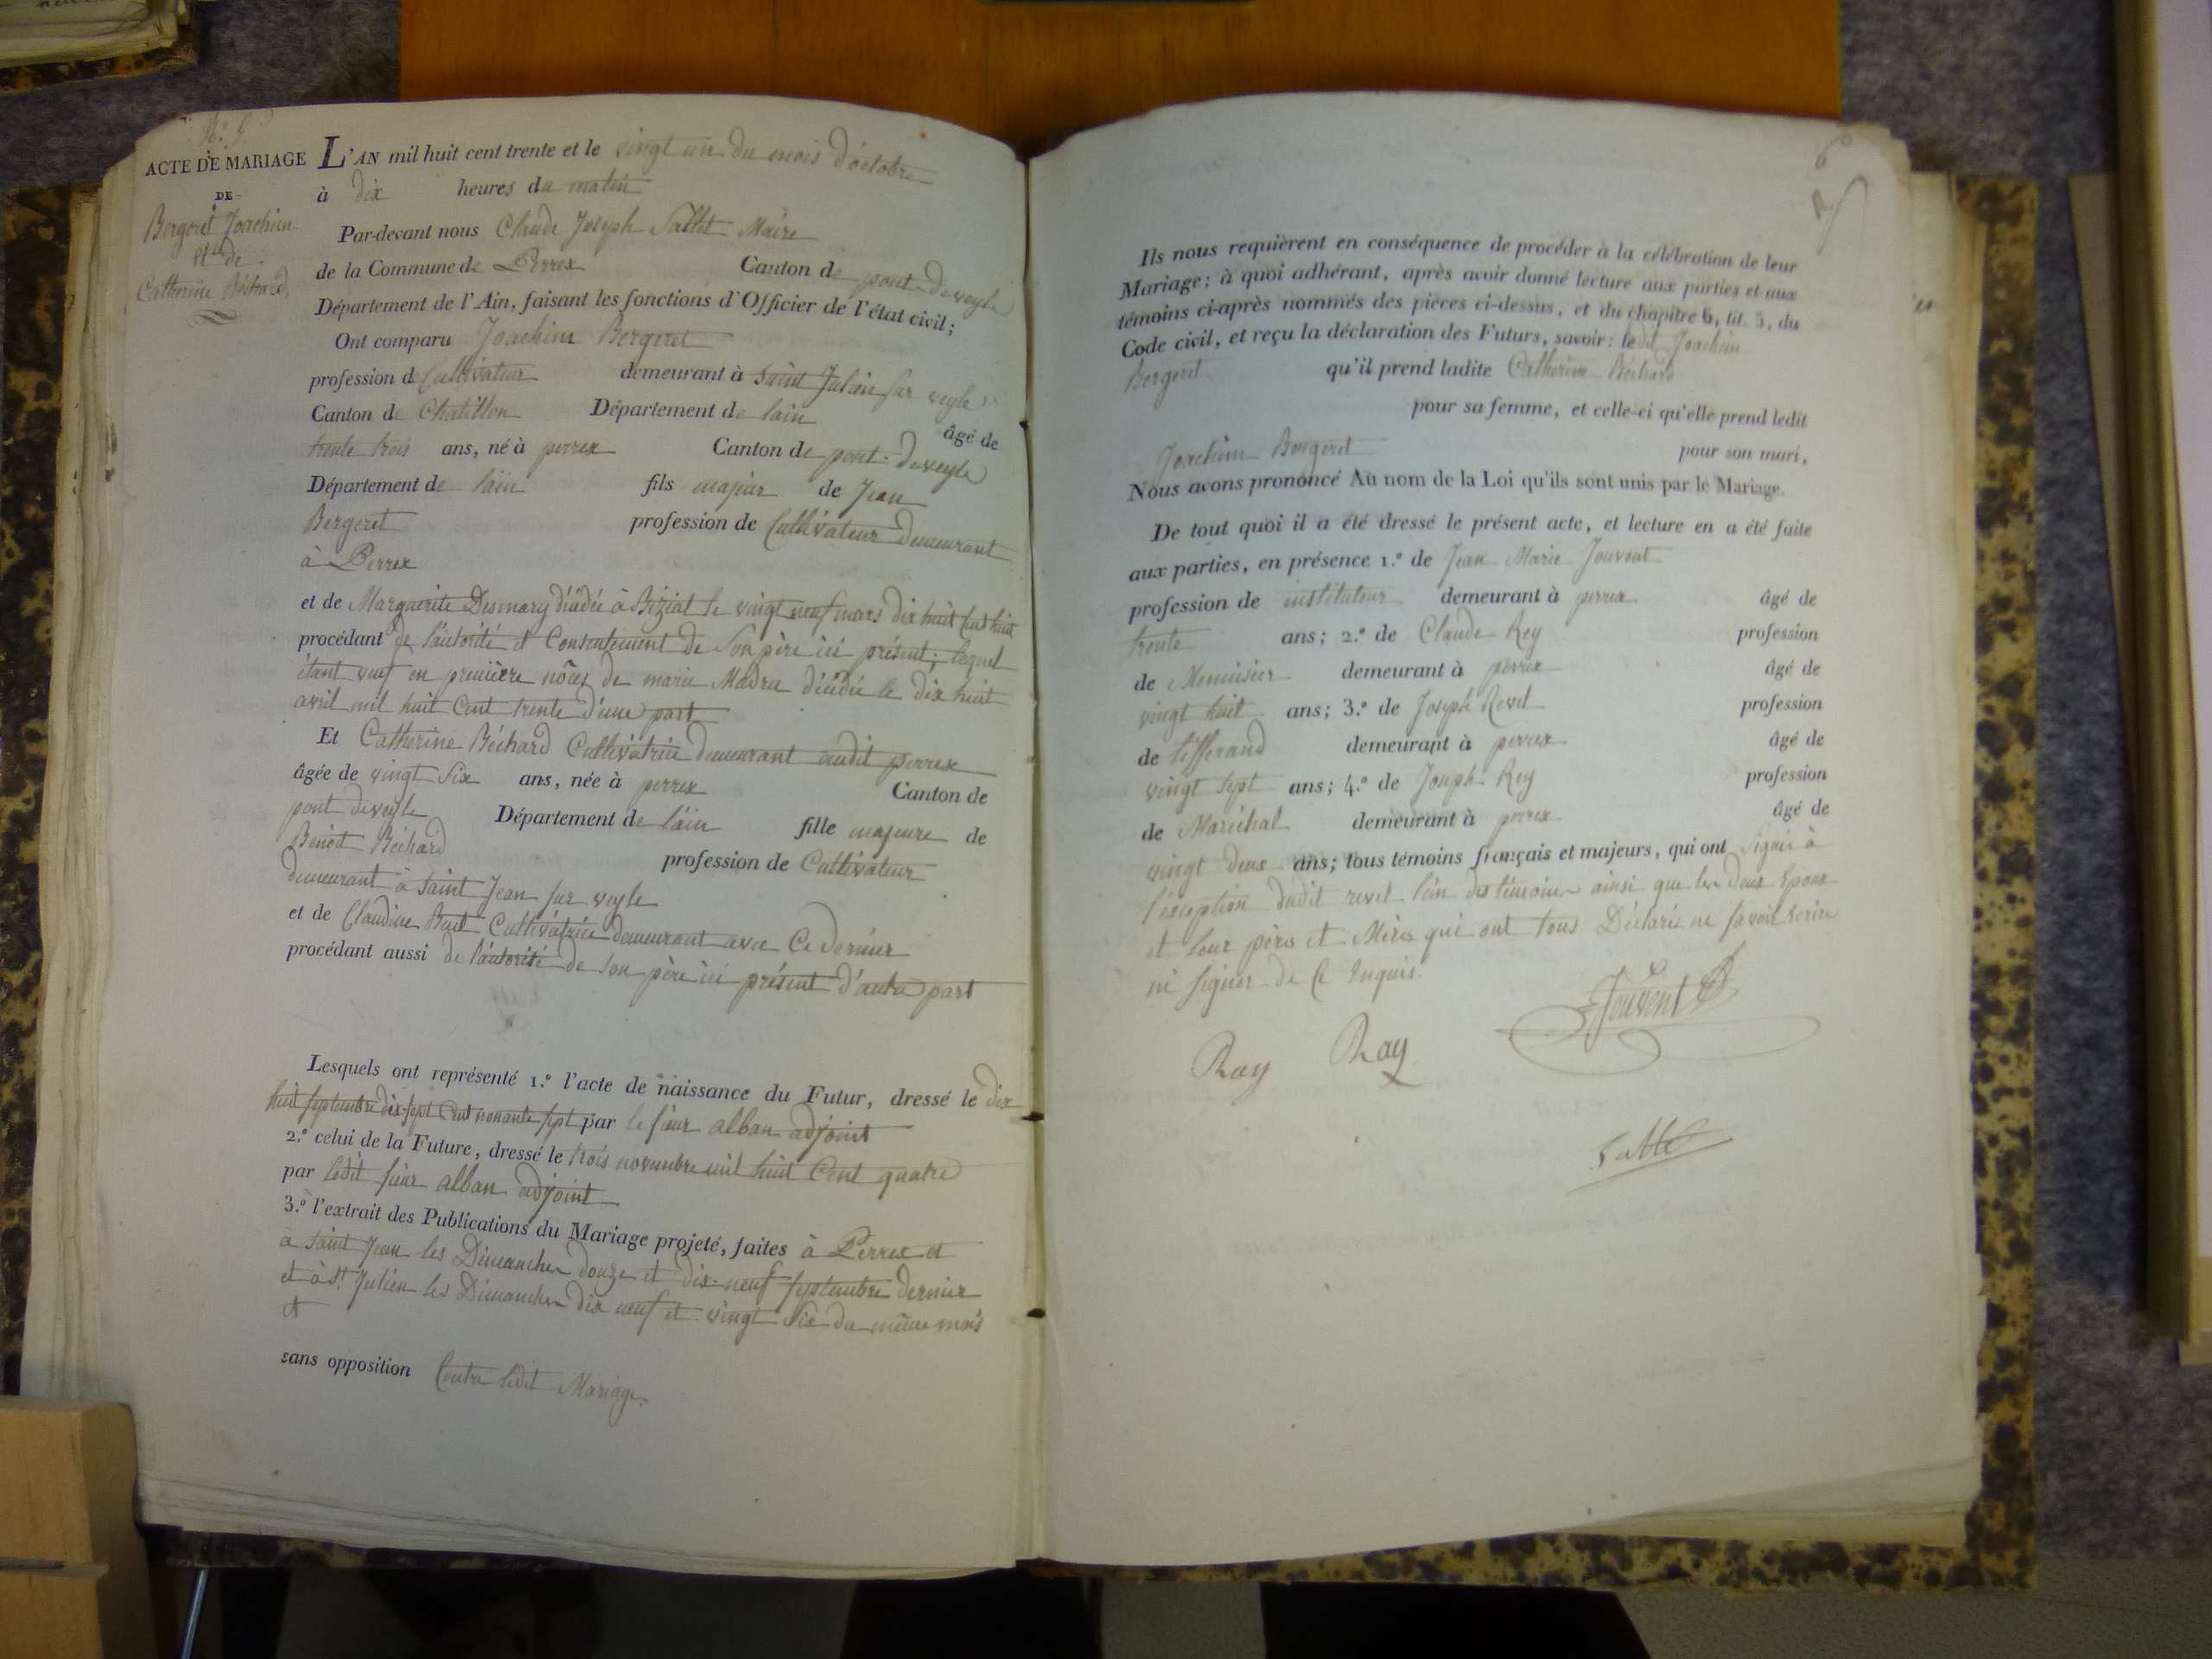 N.º 5
ACTE DE MARIAGE
DE
Bergeret Joachim
et de
Catherine Béchard
L'AN mil huit cent trente et le vingt un du mois d'octobre
à dix heures du matin
Par-devant nous Claude Joseph Maire
de la Commune de Perrex Canton de pont-deveyle
Département de l'Ain, faisant les fonctions d'Officier de l'état civil;
Ont comparu Joachim Bergeret
profession de Cultivateur demeurant à Saint Julien sur veyle
Canton de Chatillon Département de lain âgé de
trente trois ans, né à perrex Canton de pont-deveyle
Département de lain fils majeur de Jean
Bergeret profession de Cultivateur demeurant
à Perrex
et de Marguerite Desmary décédée à Biziat le vingt neuf mars dix huit Cent huit
procédant de l'autorité et Consentement de Son père ici présent; lequel
étant veuf en première nôces de marie Madru décédée le dix huit
avril mil huit Cent trente d'une part
Et Catherine Béchard Cultivatrice demeurant audit perrex
âgée de vingt Six ans, née à perrex Canton de
pont deveyle Département de lain fille majeure de
Benoit Béchard profession de Cultivateur
demeurant à Saint Jean sur veyle
et de Claudine Cultivatrice demeurant avec Ce dernier
procédant aussi de l'autorité de son père ici présent d'autre part
Lesquels ont représenté 1.º l'acte de naissance du Futur, dressé le dix
huit septembre dix-sept Cent nonante sept par le sieur alban adjoint
2.º celui de la Future, dressé le trois novembre mil huit Cent quatre
par ledit sieur alban adjoint
3.º l'extrait des Publications du Mariage projeté, faites à Perrex et
à Saint Jean les Dimanches douze et dix-neuf Septembre dernier
et à St. Julien les Dimanches dix neuf et vingt Six du même mois
et
sans opposition Contre ledit Mariage.
6
Ils nous requièrent en conséquence de procéder à la célébration de leur
Mariage; à quoi adhérant, après avoir donné lecture aux parties et aux
témoins ci-après nommés des pièces ci-dessus, et du chapitre 6, tit. 5, du
Code civil, et reçu la déclaration des Futurs, savoir: ledit Joachim
Bergeret qu'il prend ladite Catherine Béchard
pour sa femme, et celle-ci qu'elle prend ledit
Joachim Bergeret pour son mari,
Nous avons prononcé Au nom de la Loi qu'ils sont unis par le Mariage.
De tout quoi il a été dressé le présent acte, et lecture en a été faite
aux parties, en présence 1.º de Jean Marie Jouvent
profession de instituteur demeurant à perrex âgé de
trente ans; 2.º de Claude Rey profession
de Menuisier demeurant à perrex âgé de
vingt huit ans; 3.º de Joseph Revel profession
de tisserand demeurant à perrex âgé de
vingt sept ans; 4.º de Joseph Rey profession
de Maréchal demeurant à perrex âgé de
vingt deux ans; tous témoins français et majeurs, qui ont signé à
l'exception dudit revel l'un des témoins ainsi que les deux Epoux
et leur pères et Mères qui ont tous Déclaré ne savoir écrire
ni signer de Ce Enquis.
Ray Ray Jouvent